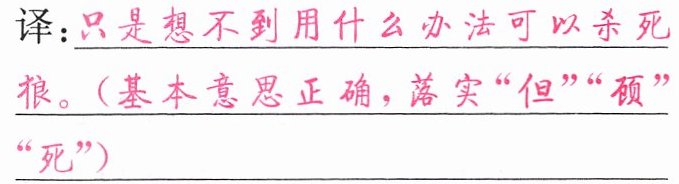 译:只是想不到用什么办法可以杀死
狼。(基本意思正确,落实“但”“顾”
“死”)